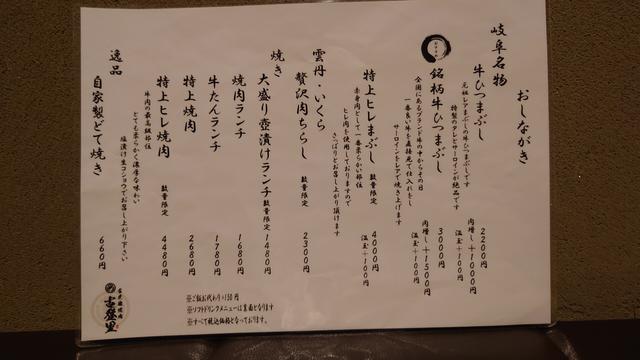 おしながき
岐阜名物
牛ひつまぶし
2200円
元祖レアまぶしの牛ひつまぶしです
特製のタレとサーロインが絶品です
肉増し +1000円
温玉 +100円
オススメ
銘柄牛ひつまぶし
3000円
全国にあるブランド牛の中からその日
一番良い牛を直接見て仕入れをし
サーロインをレアで焼き上げます
肉増し +1500円
温玉 +100円
特上ヒレまぶし 数量限定
4000円
赤身肉として一番柔らかい部位
ヒレ肉を使用しておりますので
さっぱりとお召し上がり頂けます
温玉 +100円
雲丹・いくら
贅沢肉ちらし 数量限定
2300円
焼き
大盛り壺漬けランチ 数量限定
1480円
焼肉ランチ
1680円
牛たんランチ
1780円
特上焼肉
2680円
特上ヒレ焼肉 数量限定
4480円
牛肉の最高級部位
とても柔らかく濃厚な味わい
塩漬け生コショウでお召し上がり下さい
逸品
自家製どて焼き
660円
※ご飯お代わり+150円
※ソフトドリンクメニューは裏面となります
※すべて税込価格となっております。
古登里